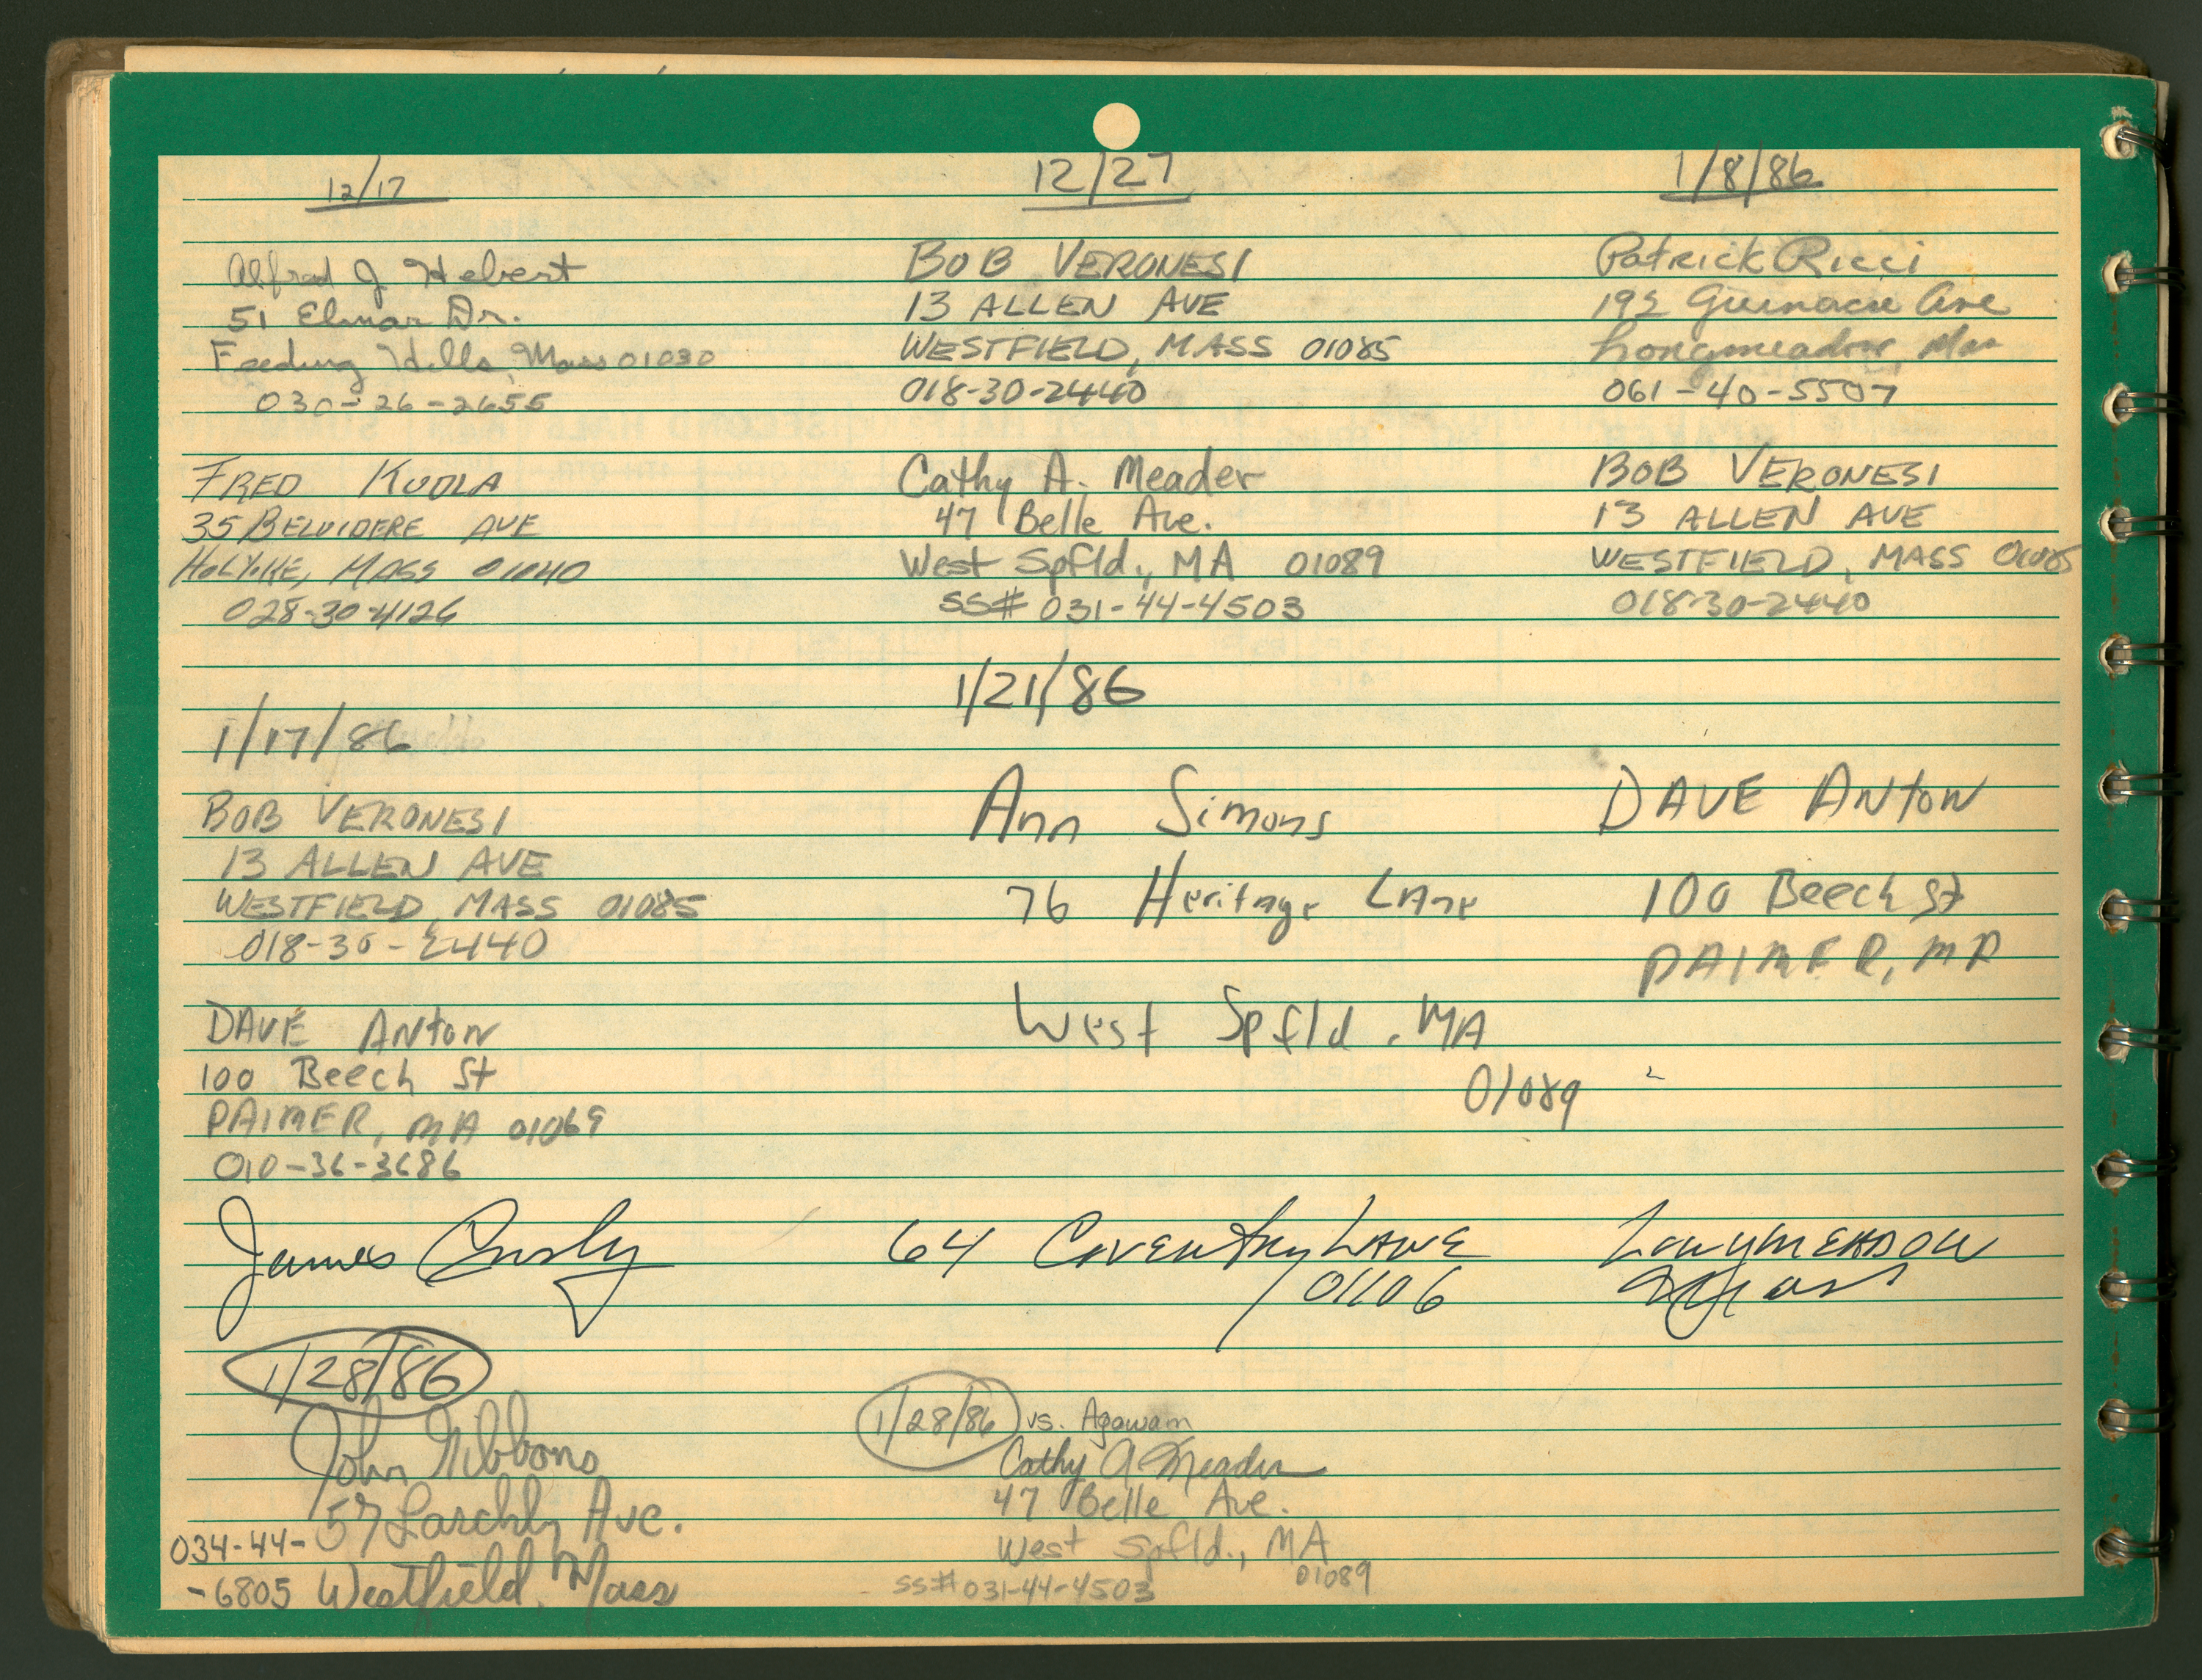 12/17
Alfred J Hebert
51 Elmar Dr.
Feeding Hills, Mass 01030
030-26-2655
FRED KUDLA
35 BELVIDERE AVE
HOLYOKE, MASS 01040
028-30-4126
12/27
BOB VERONESI
13 ALLEN AVE
WESTFIELD, MASS 01085
018-30-2440
Cathy A. Meader
47 Belle Ave.
West Spfld., MA 01089
SS# 031-44-4503
1/8/86
Patrick Ricci
Ave
Longmeadow, Mas
061-40-5507
BOB VERONESI
13 ALLEN AVE
WESTFIELD, MASS 01085
018-30-2440
1/17/86
BOB VERONESI
13 ALLEN AVE
WESTFIELD, MASS 01085
018-30-2440
DAVE ANTON
100 Beech St
PALMER, MA 01069
010-36-3686
1/21/86
Ann Simons
76 Heritage Lane
West Spfld. MA
01089
DAVE ANTON
100 Beech St
PALMER, MA
James
64 COVENTRY LANE
01106
LONGMEADOW
Mass
1/28/86
John Gibbons
57 Ave.
034-44-
-6805 Westfield, Mass
1/28/86 vs. Agawam
Cathy A Meader
47 Belle Ave.
West Spfld., MA
01089
SS# 031-44-4503